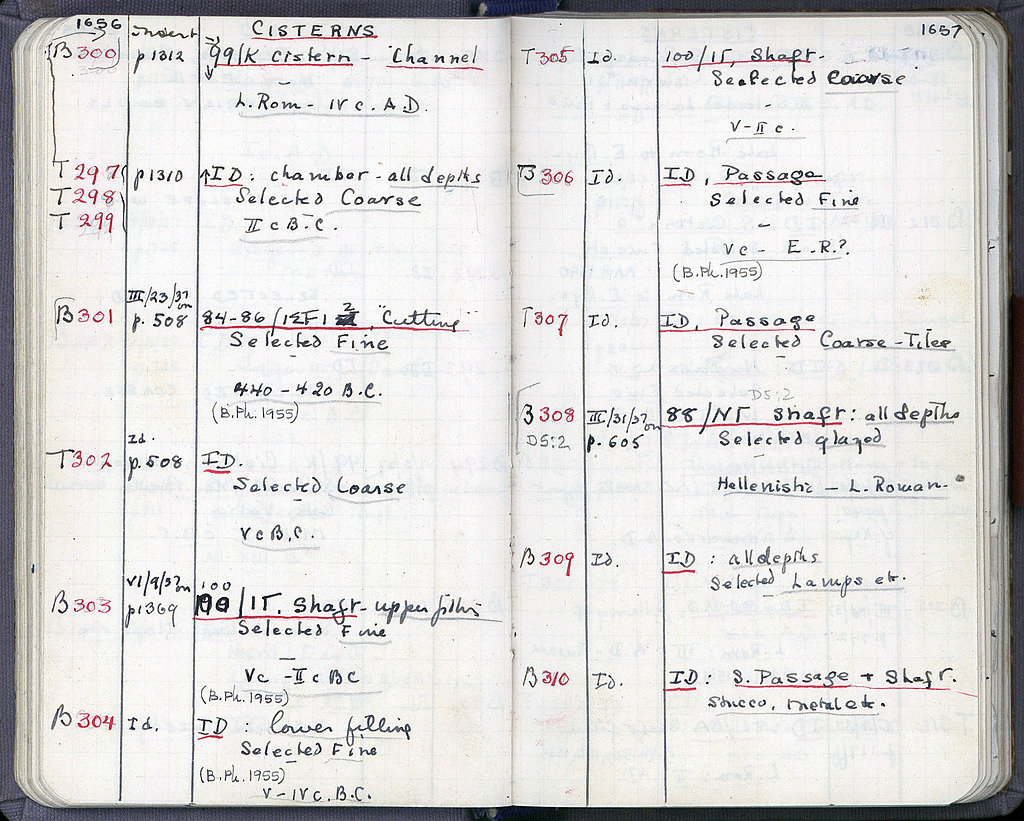 1656
insert
CISTERNS
B300 p1312 99/K Cistern - Channel
L. Rom - IV c. A.D.
T297 p1310 ↑ID: chamber - all depths
T298 Selected Coarse
T299 II c B.C.
III/23/37 on
B301 p. 508 84-86/ "Cutting"
Selected Fine
440-420 B.C.
(B.Ph. 1955)
Id.
T302 p.508 ID.
Selected Coarse
V c B.C.
VI/9/37 on 100
B303 p1369 100/ΙΓ, Shaft - upper filling
Selected Fine
Vc - II c BC
(B.Ph. 1955)
B304 Id. ID : lower filling
Selected Fine
(B.Ph. 1955)
V-IV c. B.C.
1657
T305 Id. 100/ΙΓ, Shaft.
Selected Coarse
V-II c.
B306 Id. ID, Passage
Selected Fine
Vc - E.R.?
(B.Ph. 1955)
T307 Id. ID, Passage
Selected Coarse - Tiles
D5:2
B308 III/31/37 on 88/ΝΓ Shaft: all depths
D5:2 p. 605 Selected glazed
Hellenistic - L. Roman.
B309 Id. ID : all depths
Selected Lamps etc.
B310 Id. ID: S. Passage + Shaft.
Stucco, metal etc.